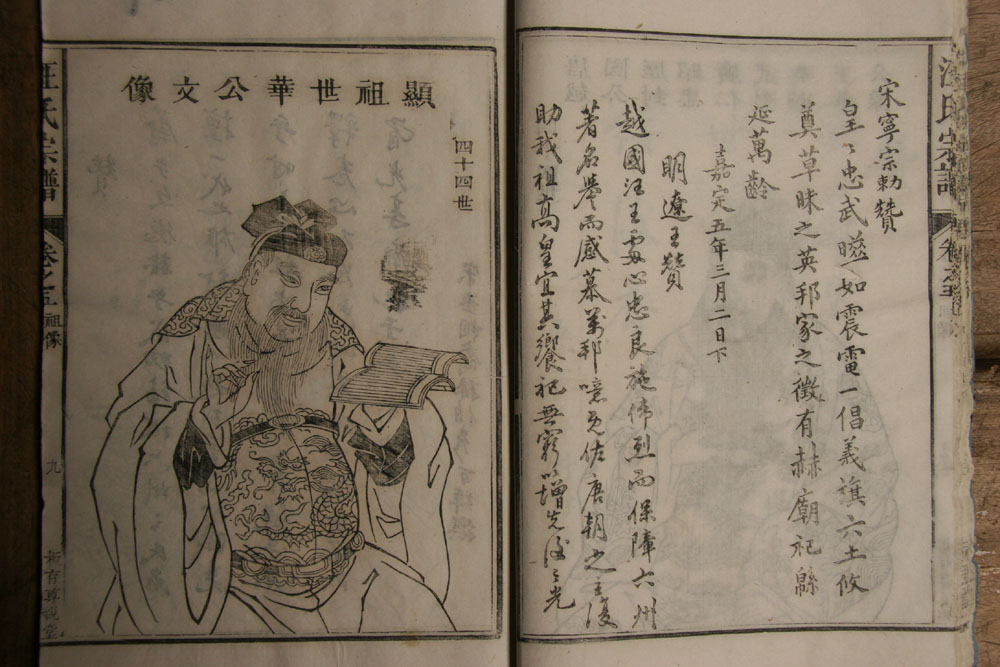 汪氏宗譜
宋寧宗勅贊
皇〻忠武曖〻如震電一倡義旗六土攸
奠草昧之英邦家之徵有赫廟祀緜
延萬齡
嘉定五年三月二日下
明遼王贊
越國汪王處心忠良施偉烈而保障六州
著名譽而感慕萬邦噫先佐唐朝之主後
助我祖高皇宜其饗祀無窮以增先後之光
顯祖世華公文像
四十四世
汪氏宗譜
卷之五
祖像
九